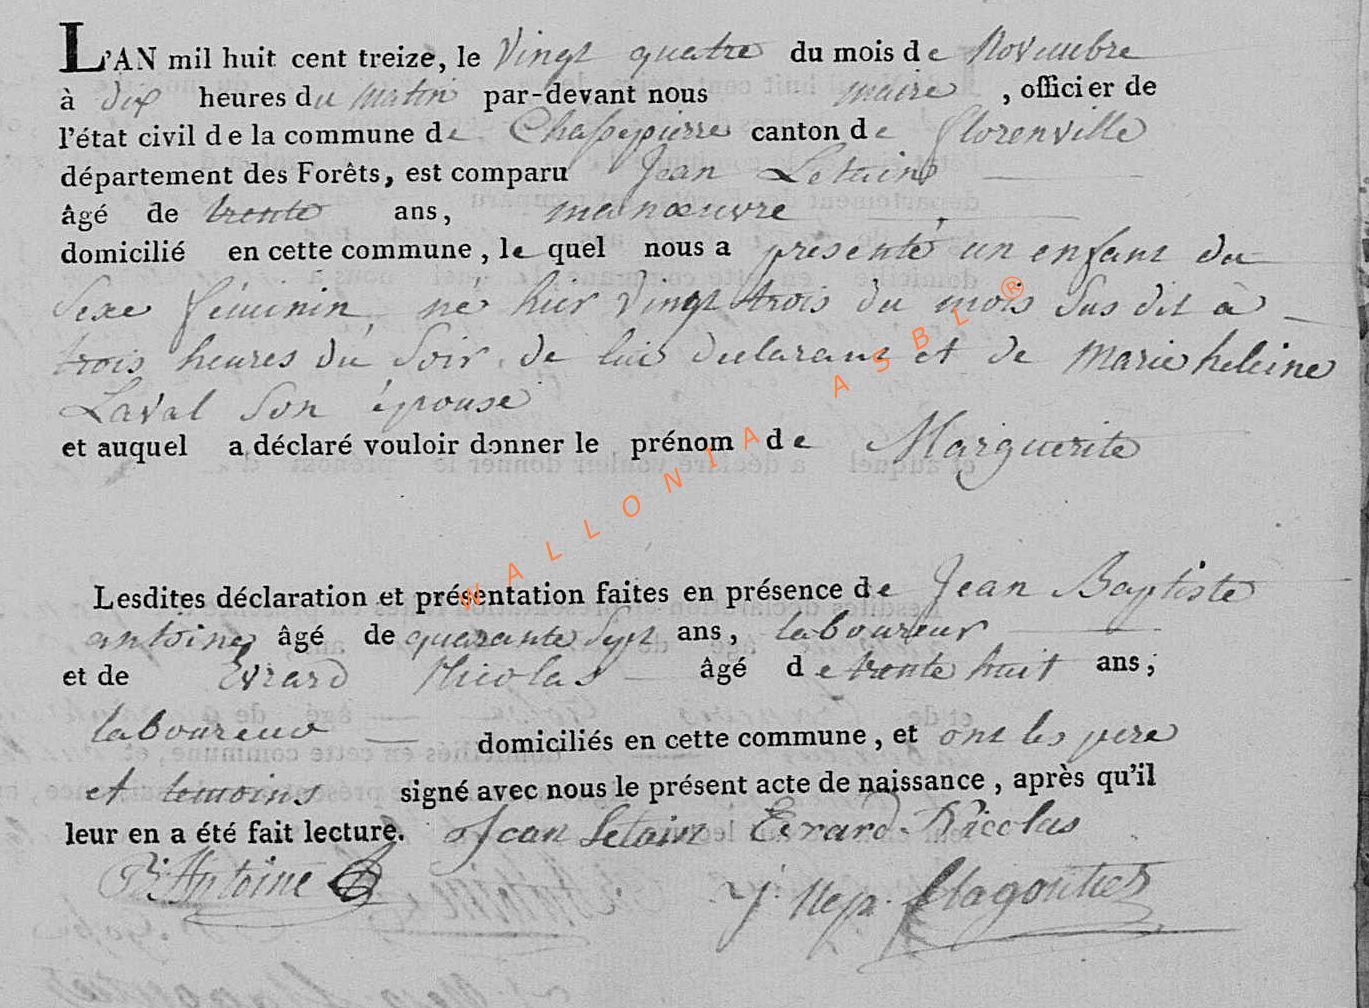 L'AN mil huit cent treize, le Vingt quatre du mois de Novembre
à dix heures du matin par-devant nous maire , officier de
l'état civil de la commune de Chassepierre canton de florenville
département des Forêts, est comparu Jean Letain
âgé de trente ans, manœuvre
domicilié en cette commune, le quel nous a présenté un enfant du
Sexe féminin, né hier Vingt trois du mois Sus dit à
trois heures du Soir, de lui declarant et de Marie heleine
Laval Son épouse
et auquel a déclaré vouloir donner le prénom de Marguerite
Lesdites déclaration et présentation faites en présence de Jean Baptiste
antoine âgé de quarante Sept ans, laboureur
et de Evrard Nicolas âgé de trente huit ans,
laboureur domiciliés en cette commune, et ont les pere
et temoins signé avec nous le présent acte de naissance, après qu'il
leur en a été fait lecture. Jean Letain Evrard Nicolas
Antoine J. Nep.
WALLONIA ASBL ®